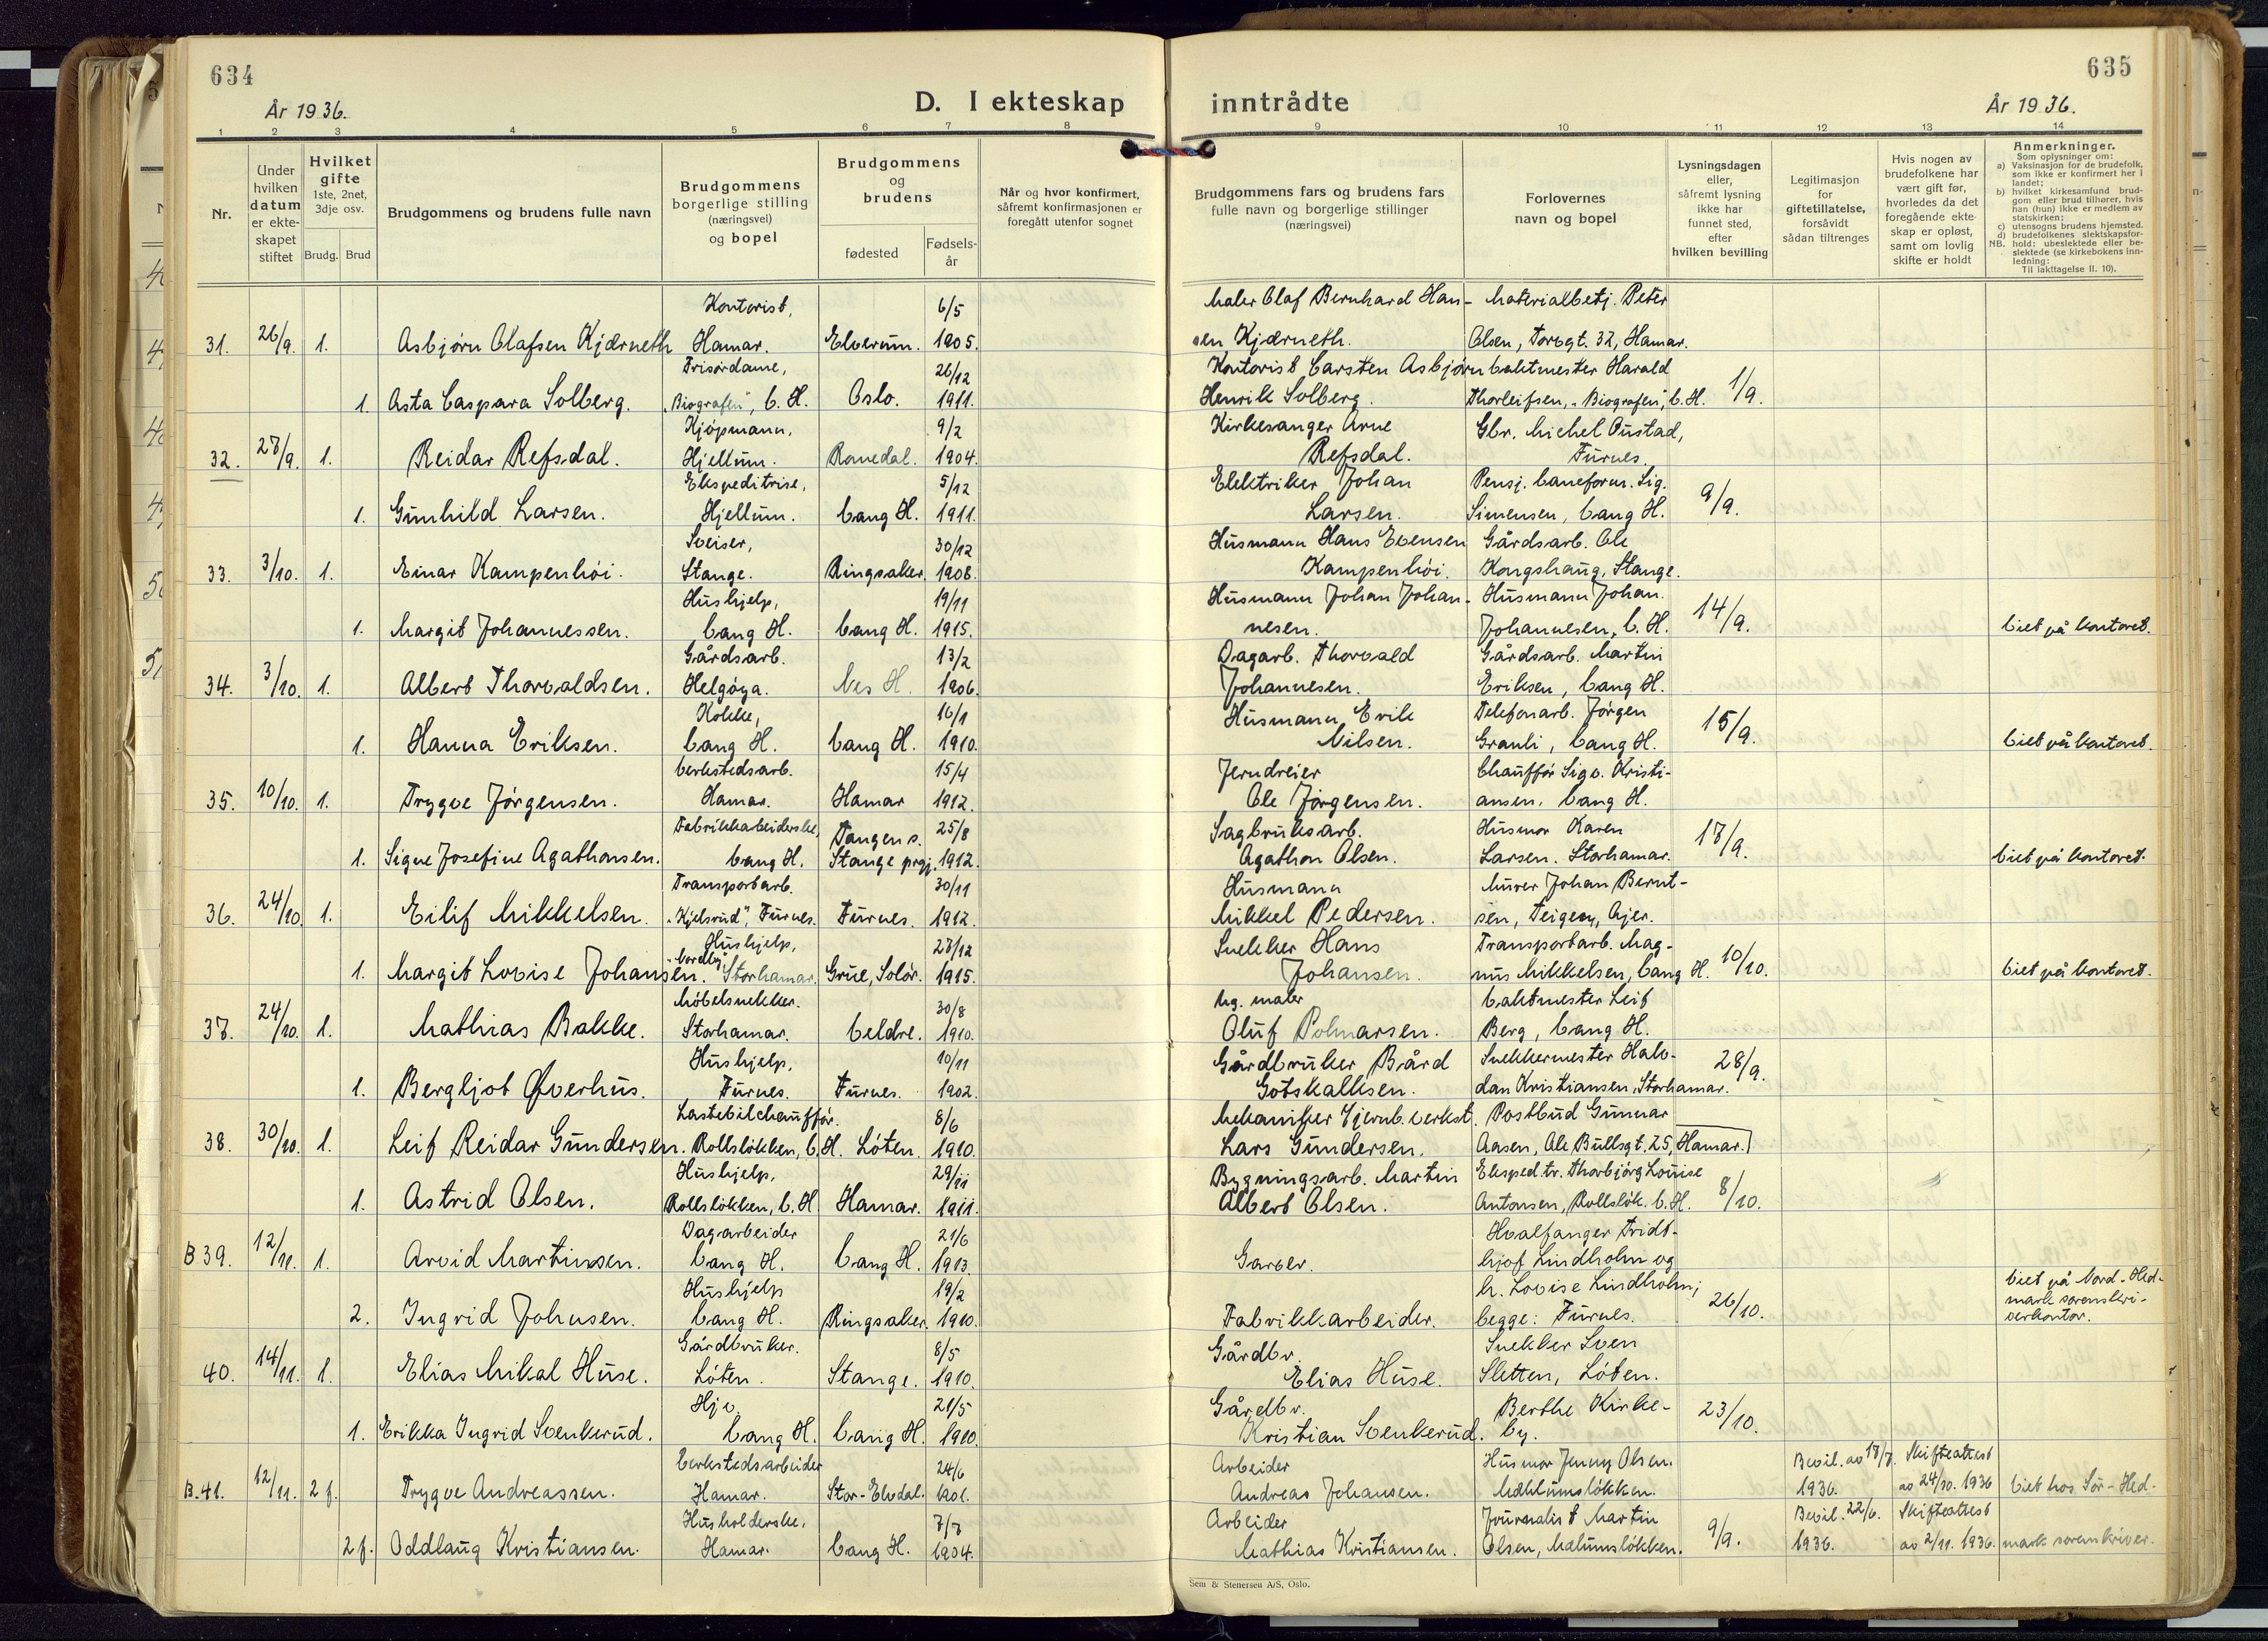 634
År 1936.
D. I ekteskap
1 2 3 4 5 6 7 8
Nr.
Under hvilken datum er ekte-skapet stiftet
Hvilket gifte
1ste, 2net, 3dje osv.
Brudg. Brud
Brudgommens og brudens fulle navn
Brudgommens borgerlige stilling (næringsvei) og bopel
Brudgommens og brudens
fødested
Fødsels-år
Når og hvor konfirmert, såfremt konfirmasjonen er foregått utenfor sognet
Kontorist, 6/5
31. 26/9. 1. Asbjørn Olafsen Kjærneth Hamar. Elverum. 1905.
Frisørdame, 26/12
1. Asta Caspara Solberg. "Biografen", V. H. Oslo. 1911.
Kjøpmann, 9/2
32. 27/9. 1. Reidar Refsdal. Hjellum. Romedal. 1904.
Ekspeditrise, 5/12
1. Gunhild Larsen. Hjellum. Vang H. 1911.
Sveiser, 30/12
33. 3/10. 1. Einar Kampenhöi. Stange. Ringsaker. 1908.
Hushjelp, 19/11
1. Margit Johannessen. Vang H. Vang H. 1915.
Gårdsarb. 13/2
34. 3/10. 1. Albert Thorvaldsen. Helgöya. Nes H. 1906.
Kokke, 16/1
1. Hanna Eriksen. Vang H. Vang H. 1910.
Verkstedsarb. 15/4
35. 10/10. 1. Trygve Jörgensen. Hamar. Hamar 1912.
Fabrikkarbeiderske, Tangen s. 25/8
1. Signe Josefine Agathonsen. Vang H. Stange prgj. 1912.
Transportarb. 30/11
36. 24/10. 1. Eilif Mikkelsen. "Kjelsrud", Furnes. Furnes. 1912.
Hushjelp, 27/12
1. Margit Lovise Johansen. Storhamar. Grue, Solör. 1915.
Möbelsnekker. 30/8
37. 24/10. 1. Mathias Bakke. Storhamar. Veldre. 1910.
Hushjelp, 10/11
1. Bergljot Øverhus. Furnes. Furnes. 1902.
Lastebilchauffør. 8/6
38. 30/10. 1. Leif Reidar Gundersen. Rollslökken, V. H. Löten. 1910.
Hushjelp, 29/11
1. Astrid Olsen. Rollslökken, V. H. Hamar. 1911.
Dagarbeider 21/6
B.39. 12/11. 1. Arvid Martinsen. Vang H. Vang H. 1913.
Hushjelp 19/2
2. Ingrid Johnsen. Vang H. Ringsaker. 1910.
Gårdbruker. 8/5
40. 14/11. 1. Elias Mikal Huse. Löten. Stange. 1910.
Hjv. 21/5
1. Erikka Ingrid Svenkerud. Vang H. Vang H. 1910.
Verkstedsarbeider 24/6
B.41. 12/11. 2 f. Trygve Andreassen. Hamar. Stor-Elvdal. 1901.
Husholderske, 7/7
2 f. Oddlaug Kristiansen. Hamar. Vang H. 1904.
635
inntrådte
År 1936.
9 10 11 12 13 14
Brudgommens fars og brudens fars fulle navn og borgerlige stillinger (næringsvei)
Forlovernes navn og bopel
Lysningsdagen eller, såfremt lysning ikke har funnet sted, efter hvilken bevilling
Legitimasjon for giftetillatelse, forsåvidt sådan tiltrenges
Hvis nogen av brudefolkene har vært gift før, hvorledes da det foregående ekte-skap er opløst, samt om lovlig skifte er holdt
Anmerkninger.
Som oplysninger om:
a) Vaksinasjon for de brudefolk, som ikke er konfirmert her i landet;
b) hvilket kirkesamfund brud-gom eller brud tilhører, hvis han (hun) ikke er medlem av statskirken;
c) utensogns brudens hjemsted.
d) brudefolkenes slektskapsfor-hold: ubeslektede eller be-slektede (se kirkebokens inn-ledning:
NB.
Til iakttagelse II. 10).
Maler Olaf Bernhard Han- Materialbetj. Peter
sen Kjærneth. Olsen, Torvgt. 32, Hamar.
Kontorist Carsten Asbjørn Vaktmester Harald
Henrik Solberg. Thorleifsen, "Biografen", V. H. 1/9.
Kirkesanger Arne Gbr. Michel Pustad,
Refsdal. Furnes.
Elektriker Johan Pensj. baneform. Sig.
Larsen. Simensen, Vang H. 9/9.
Husmann Hans Evensen Gårdsarb. Ole
Kampenhöi. Kongshaug, Stange.
Husmann Johan Johan- Husmann Johan
nesen. Johannesen, V. H. 14/9. Viet på kontoret.
Dagarb. Thorvald Gårdsarb. Martin
Johannesen. Eriksen, Vang H.
Husmann Erik Telefonarb. Jörgen
Nilsen. Granli, Vang H. 15/9. Viet på kontoret.
Jerndreier Chaufför Sigv. Kristi-
Ole Jörgensen. ansen, Vang H.
Sagbruksarb. Husmor Karen
Agathon Olsen. Larsen. Storhamar. 17/9. Viet på kontoret.
Husmann Murer Johan Bernt-
Mikkel Pedersen. sen, Teigen, Ajer.
Snekker Hans Transportarb. Mag-
Johansen. nus Mikkelsen, Vang H. 10/10. Viet på kontoret.
hg. maler Vaktmester Leif
Oluf Polmarsen. Berg, Vang H.
Gårdbruker Bård Snekkermester Halv-
Gotskalksen. dan Kristiansen, Storhamar. 28/9.
Mekaniker Hjernb.verkst. Postbud Gunnar
Lars Gundersen. Aasen, Ole Bullsgt. 25, Hamar.
Bygningsarb. Martin Eksped.tr. Thorbjörg Louise
Albert Olsen. Antonsen, Rollslök. V. H. 8/10.
Hvalfanger Fridt-
Garver. hjof Lindholm og
fr. Lovise Lindholm; Viet på Nord-Hed-
Fabrikkarbeider. begge: Furnes. 26/10. mark sorenskri-
verkontor.
Gårdbr. Snekker Sven
Elias Huse. Sletten, Löten.
Gårdbr. Berthe Kirke-
Kristian Svenkerud. by. 23/10.
Arbeider Husmor Jenny Olsen. Bevil. av 17/7. Skifteattest
Andreas Johansen. Mælumslökken. 1936. av 24/10. 1936 Viet hos Sör-Hed-
Arbeider Journalist Martin Bevil. 22/6. Skifteattest
Mathias Kristiansen. Olsen, Mælumslökken. 9/9. 1936. av 2/11. 1936. mark sorenskriver.
Sem & Stenersen A/S, Oslo.